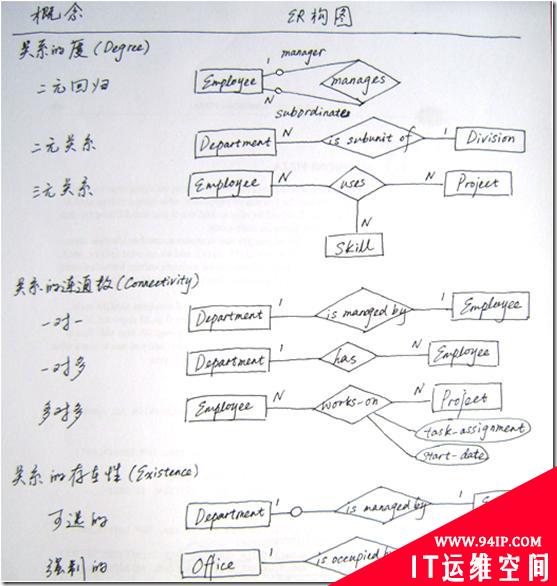 概念 ER构图
关系的度(Degree)
二元回归 Employee 1 manager N subordinate manages
二元关系 Department N is subunit of 1 Division
三元关系 Employee N uses N Project
N
Skill
关系的连通数(Connectivity)
一对一 Department 1 is managed by 1 Employee
一对多 Department 1 has N Employee
多对多 Employee N works-on N Project
task-assignment
start-date
关系的存在性(Existence)
可选的 Department 1 is managed by 1
强制的 Office 1 is occupied
WWW.94IP.COM
IT运维空间